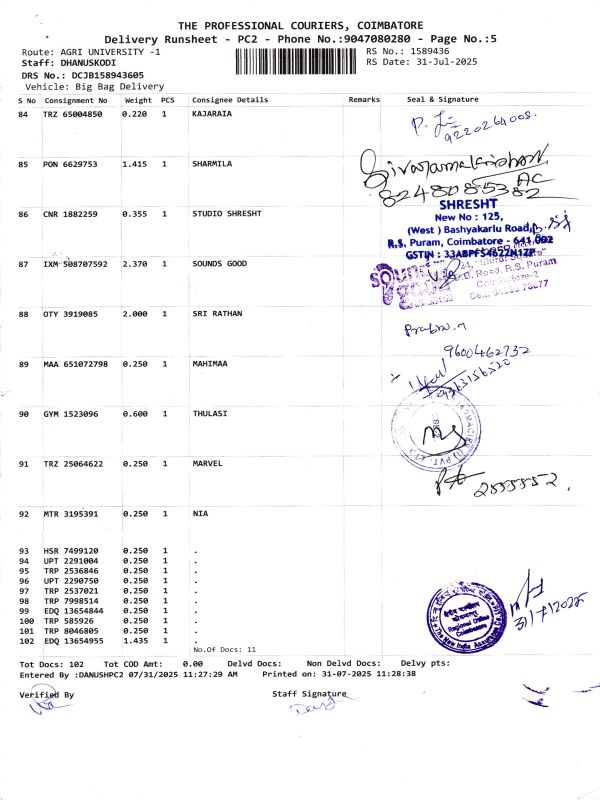 THE PROFESSIONAL COURIERS, COIMBATORE
Delivery Runsheet - PC2 - Phone No.:9047080280 - Page No.:5
Route: AGRI UNIVERSITY -1
RS No.: 1589436
Staff: DHANUSKODI
RS Date: 31-Jul-2025
DRS No.: DCJB158943605
Vehicle: Big Bag Delivery
S No Consignment No Weight PCS Consignee Details Remarks Seal & Signature
84 TRZ 65004850 0.220 1 KAJARAIA
9220264008.
85 PON 6629753 1.415 1 SHARMILA
8248085382
86 CNR 1882259 0.355 1 STUDIO SHRESHT
SHRESHT
New No : 125,
(West ) Bashyakarlu Road,
R.S. Puram, Coimbatore - 641 002
GSTIN : 33ABPFS4622N1ZF
87 IXM 508707592 2.370 1 SOUNDS GOOD
sounds good
Road, R.S. Puram
Coimbatore-2
88 OTY 3919085 2.000 1 SRI RATHAN
Prabu.n
9600462732
89 MAA 651072798 0.250 1 MAHIMAA
9363156520
90 GYM 1523096 0.600 1 THULASI
91 TRZ 25064622 0.250 1 MARVEL
2555552.
92 MTR 3195391 0.250 1 NIA
93 HSR 7499120 0.250 1 .
94 UPT 2291004 0.250 1 .
95 TRP 2536846 0.250 1 .
96 UPT 2290750 0.250 1 .
97 TRP 2537021 0.250 1 .
98 TRP 7998514 0.250 1 .
99 EDQ 13654844 0.250 1 .
100 TRP 585926 0.250 1 .
101 TRP 8046805 0.250 1 .
102 EDQ 13654955 1.435 1 .
Regional Office
Coimbatore
The New India Assurance Co.
31/7/2025
No.Of Docs: 11
Tot Docs: 102 Tot COD Amt: 0.00 Delvd Docs: Non Delvd Docs: Delvy pts:
Entered By :DANUSHPC2 07/31/2025 11:27:29 AM Printed on: 31-07-2025 11:28:38
Verified By
Staff Signature